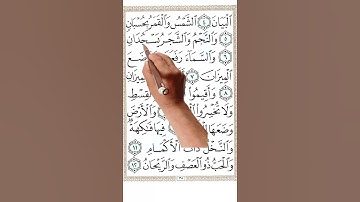 ٱلْبَيَانَ ٤ ٱلشَّمْسُ وَٱلْقَمَرُ بِحُسْبَانٍ
٥ وَٱلنَّجْمُ وَٱلشَّجَرُ يَسْجُدَانِ
٦ وَٱلسَّمَآءَ رَفَعَهَا وَوَضَعَ
ٱلْمِيزَانَ ٧
٨ وَأَقِيمُوا۟ ٱلْقِسْطِ
وَلَا تُخْسِرُوا۟ وَٱلْأَرْضَ
وَضَعَهَا فِيهَا فَٰكِهَةٌ
وَٱلنَّخْلُ ذَاتُ ٱلْأَكْمَامِ ١١
وَٱلْحَبُّ ذُو ٱلْعَصْفِ وَٱلرَّيْحَانُ ١٢